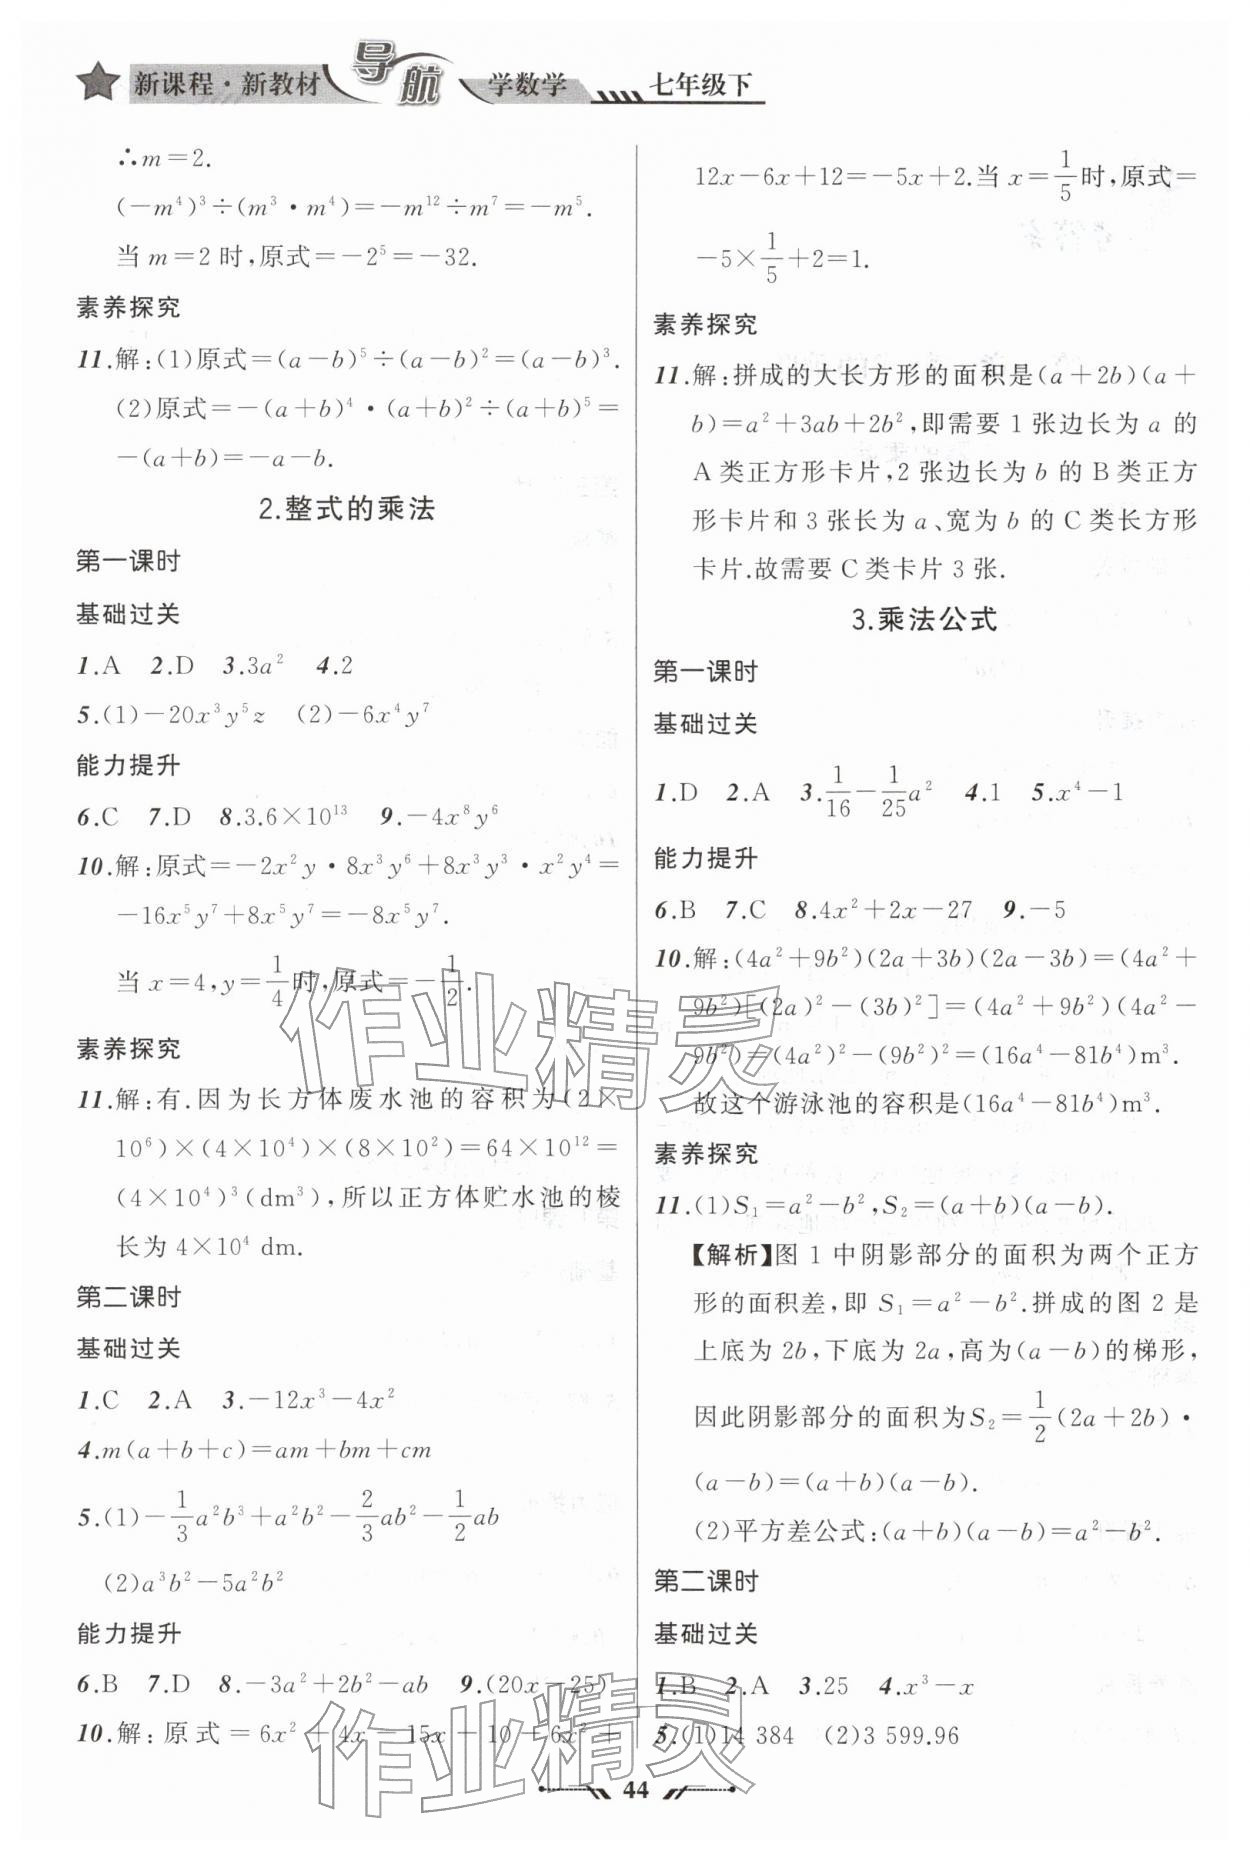 新课程·新教材 导航 学数学 七年级下
∴m=2.
(-m⁴)³÷(m³·m⁴)=-m¹²÷m⁷=-m⁵.
当m=2时,原式=-2⁵=-32.
素养探究
11.解:(1)原式=(a-b)⁵÷(a-b)²=(a-b)³.
(2)原式=-(a+b)⁴·(a+b)²÷(a+b)⁵=
-(a+b)=-a-b.
2.整式的乘法
第一课时
基础过关
1.A 2.D 3.3a² 4.2
5.(1)-20x³y⁵z (2)-6x⁴y⁷
能力提升
6.C 7.D 8.3.6×10¹³ 9.-4x⁸y⁶
10.解:原式=-2x²y·8x³y⁶+8x³y³·x²y⁴=
-16x⁵y⁷+8x⁵y⁷=-8x⁵y⁷.
当x=4,y=1/4时,原式=-1/2.
素养探究
11.解:有.因为长方体废水池的容积为(2×
10⁶)×(4×10⁴)×(8×10²)=64×10¹²=
(4×10⁴)³(dm³),所以正方体贮水池的棱
长为4×10⁴ dm.
第二课时
基础过关
1.C 2.A 3.-12x³-4x²
4.m(a+b+c)=am+bm+cm
5.(1)-1/3a²b³+a²b²-2/3ab²-1/2ab
(2)a³b²-5a²b²
能力提升
6.B 7.D 8.-3a²+2b²-ab 9.(20x-25)
10.解:原式=6x²+4x-15x-10+6x²+
12x-6x+12=-5x+2.当x=1/5时,原式=
-5×1/5+2=1.
素养探究
11.解:拼成的大长方形的面积是(a+2b)(a+
b)=a²+3ab+2b²,即需要1张边长为a的
A类正方形卡片,2张边长为b的B类正方
形卡片和3张长为a、宽为b的C类长方形
卡片.故需要C类卡片3张.
3.乘法公式
第一课时
基础过关
1.D 2.A 3.1/16-1/25a² 4.1 5.x⁴-1
能力提升
6.B 7.C 8.4x²+2x-27 9.-5
10.解:(4a²+9b²)(2a+3b)(2a-3b)=(4a²+
9b²)[(2a)²-(3b)²]=(4a²+9b²)(4a²-
9b²)=(4a²)²-(9b²)²=(16a⁴-81b⁴)m³.
故这个游泳池的容积是(16a⁴-81b⁴)m³.
素养探究
11.(1)S₁=a²-b²,S₂=(a+b)(a-b).
【解析】图1中阴影部分的面积为两个正方
形的面积差,即S₁=a²-b².拼成的图2是
上底为2b,下底为2a,高为(a-b)的梯形,
因此阴影部分的面积为S₂=1/2(2a+2b)·
(a-b)=(a+b)(a-b).
(2)平方差公式:(a+b)(a-b)=a²-b².
第二课时
基础过关
1.B 2.A 3.25 4.x³-x
5.(1)14 384 (2)3 599.96
44
作业精灵
作业精灵